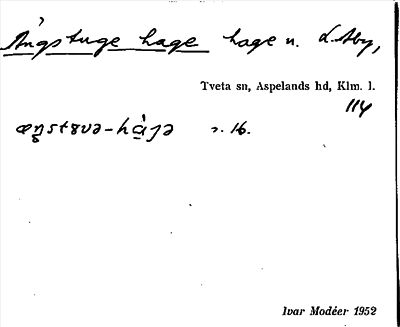 Ängstuge hage hage n. L. Aby,
Tveta sn, Aspelands hd, Klm. l.
114
s. 16.
Ivar Modéer 1952